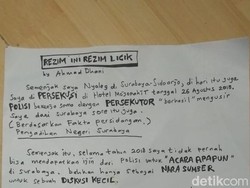 REZIM INI REZIM LICIK
by Ahmad Dhani
Semenjak saya Nyaleg di Surabaya-Sidoarjo, di hari itu juga
saya di PERSEKUSI di Hotel Majapahit tanggal 26 Agustus 2018.
POLISI bersama sama dengan PERSEKUTOR "berhasil" mengusir
saya dari Surabaya sore itu juga.
(Berdasarkan Fakta Persidangan)
Pengadilan Negeri Surabaya
Semenjak itu, selama tahun 2018 saya tidak pernah
bisa mendapatkan izin dari Polisi untuk "ACARA APAPUN"
di Surabaya, bahkan hanya sebagai NARA SUMBER
untuk sebuah DISKUSI KECIL.
detikcom